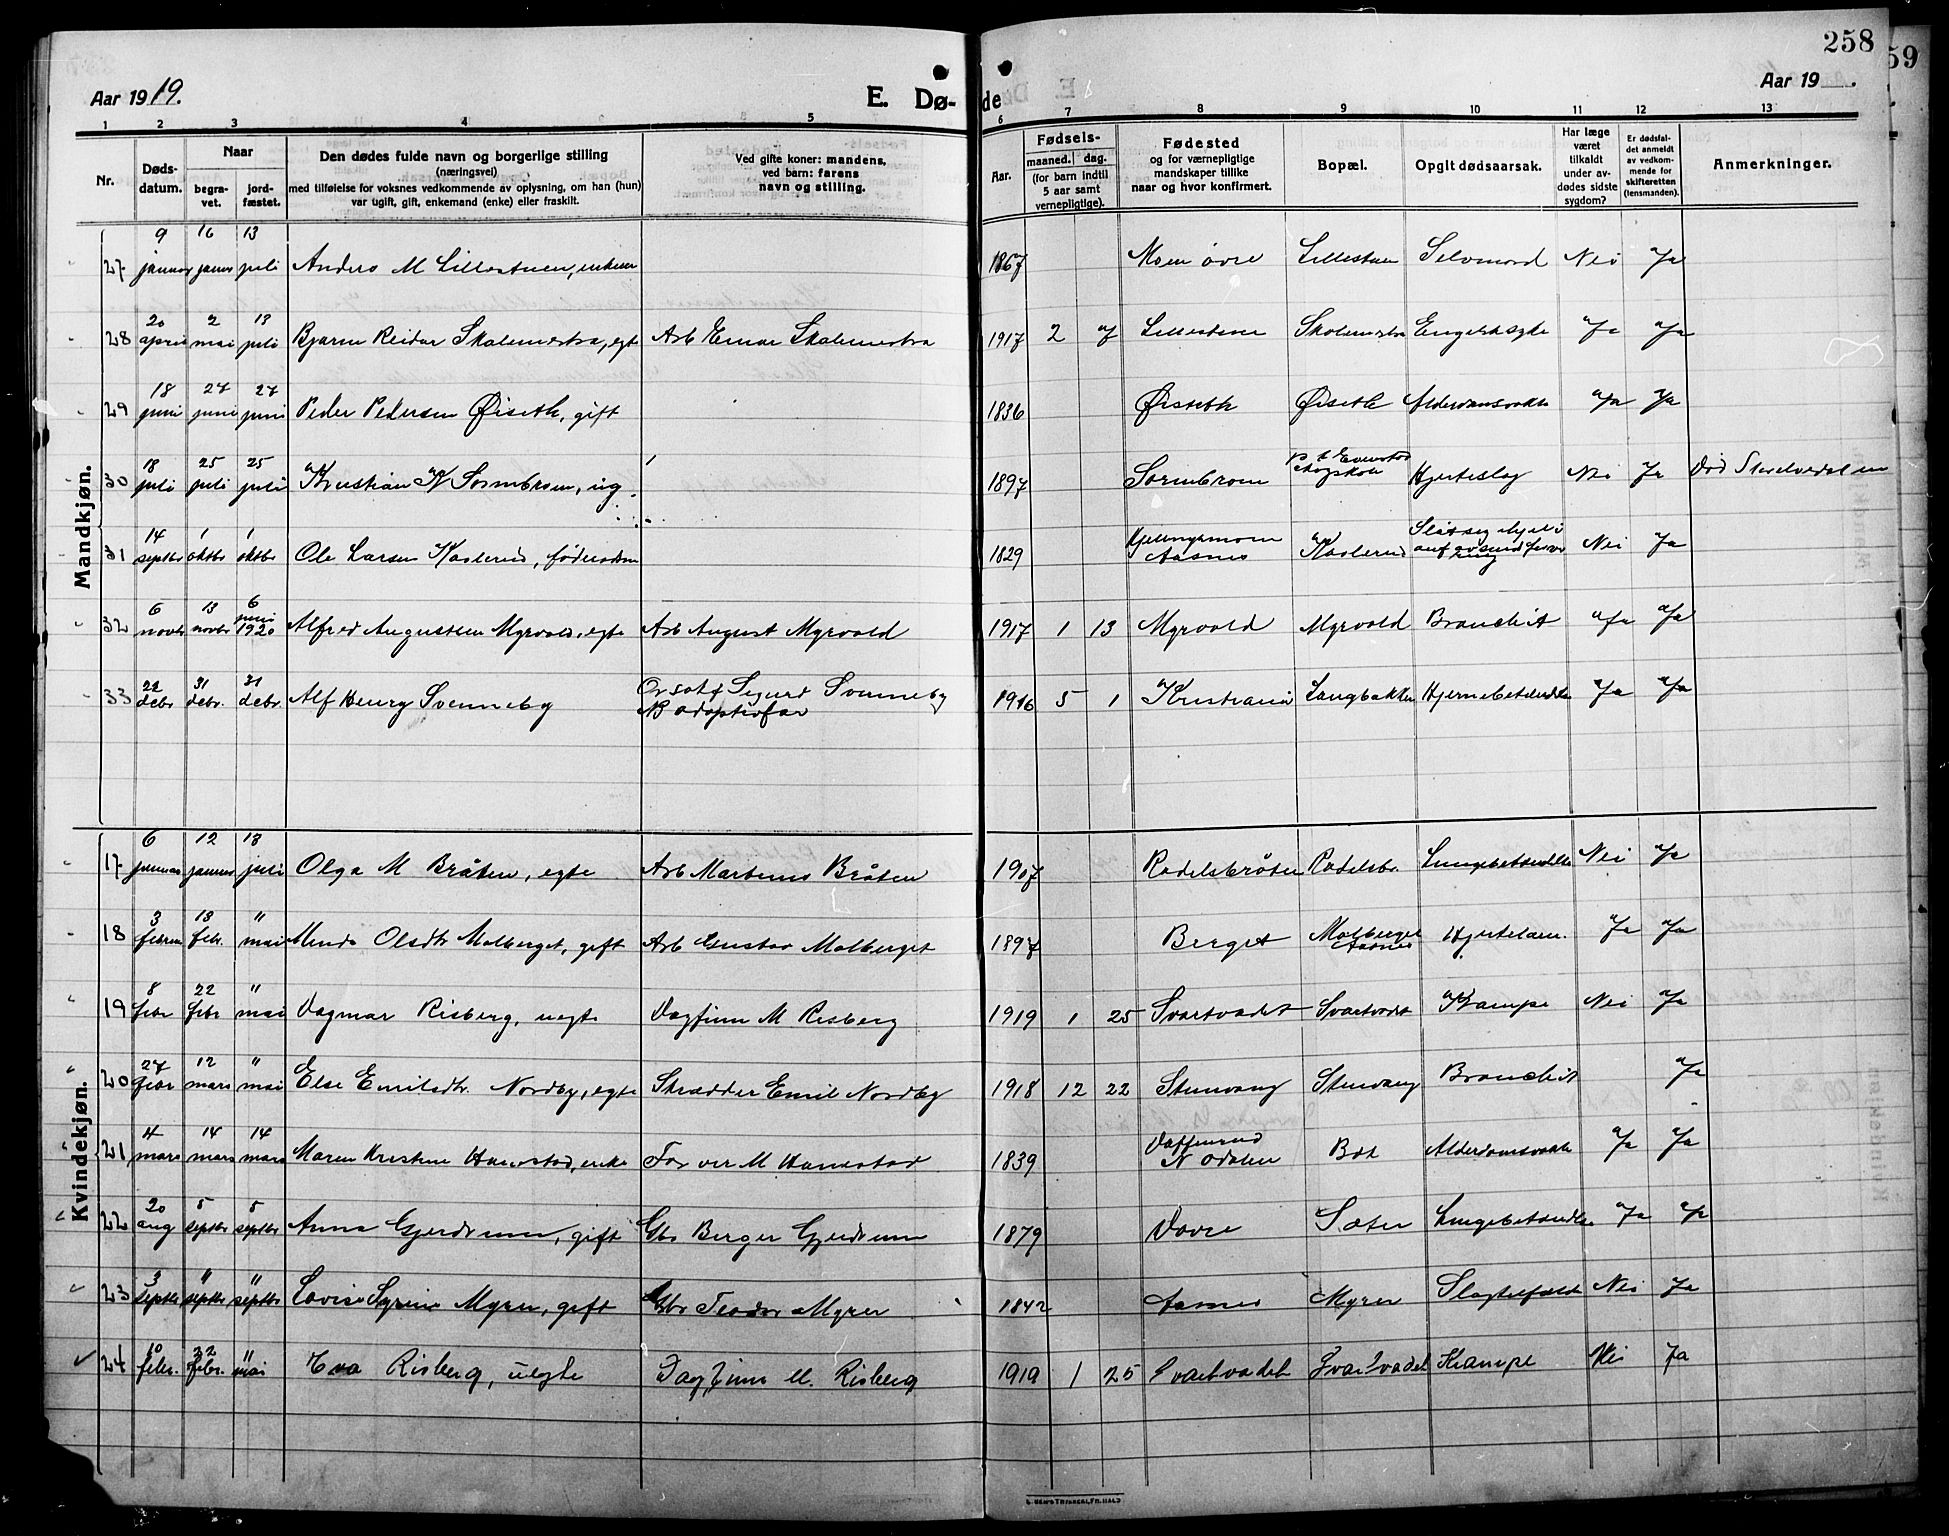 258
59
Aar 1919.
E. Dø-
de
Aar 19 .
1 2 3 4 5 6 7 8 9 10 11 12 13
Nr.
Døds-
datum.
Naar
begra-
vet.
jord-
fæstet.
Den dødes fulde navn og borgerlige stilling
(næringsvei)
med tilføielse for voksnes vedkommende av oplysning, om han (hun)
var ugift, gift, enkemand (enke) eller fraskilt.
Ved gifte koner: mandens,
ved barn: farens
navn og stilling.
Aar.
Fødsels-
maaned. dag.
(for barn indtil
5 aar samt
vernepligtige).
Fødested
og for værnepligtige
mandskaper tillike
naar og hvor konfirmert.
Bopæl.
Opgit dødsaarsak.
Har læge
været
tilkaldt
under av-
dødes sidste
sygdom?
Er dødsfal-
det anmeldt
av vedkom-
mende for
skifteretten
(lensmanden).
Anmerkninger.
Mandkjøn.
9 16 13
27 januar januar juli Anders M Lillestuen, 1867 Moen øvre Lillestuen Selvmord Nei Ja
20 2 13
28 april mai juli Bjarne Reidar Skolemestra, egte Arb Einar Skolemestra 1917 2 7 Lillestuen Skolemestra Engelsk syke Ja Ja
18 27 27
29 juni juni juni Peder Pedersen Øiseth, gift 1836 Øiseth Øiseth Alderdomssvakh Ja Ja
18 25 25
30 juli juli juli Kristian K Sormbroen, ug. 1897 Sormbroen Evenstad skogskole Hjerteslag Nei Ja Død Storelvedalen
14 1 1
31 septbr oktbr oktbr Ole Larsen Kaslerud, føderaadsm 1829 Kjellingmoen Aasnes Kaslerud Nei Ja
6 13 6
32 novbr novbr juni 1920 Alfred Augustsen Myrvold, egte Arb August Myrvold 1917 1 13 Myrvold Myrvold Bronchit Ja Ja
22 31 31
33 debr debr. debr. Alf Henry Svenneby Sigurd Svenneby 1916 5 1 Kristiania Langbakken Hjernebetændelse Ja Ja
NB adoptivfar
Kvindekjøn.
6 12 13
17 januar januar juli Olga M Bråten, egte Arb Martinus Bråten 1907 Radelsbråten Radelsbr. Lungebetændelse Nei Ja
3 13 "
18 februar febr. mai Minda Olsdtr Malberget, gift Arb Gustav Malberget 1897 Berget Malberget Aasnes Hjertelam. Ja Ja
8 22 "
19 febr febr mai Dagmar Risberg, uegte Dagfinn M Risberg 1919 1 25 Svartvadet Svartvadet Krampe Nei Ja
27 12 "
20 febr mars mai Else Emilsdtr. Nordby, egte Skrædder Emil Nordby 1918 12 22 Stenvang Stenvang Bronchit Ja
4 14 14
21 mars mars mars Maren Kristine Hanestad, enke Forver M Hanestad 1839 N Odalen Alderdomssvakh Ja Ja
20 5 5
22 aug septbr septbr Anna Gjerdrum, gift Gbr Berger Gjerdrum 1879 Dovre Sæter Lungebetændelse Ja Ja
3 " "
23 septbr septbr septbr Lovise Syrine Myrer, gift Gbr Teodor Myrer 1842 Aasnes Myrer Slagtilfælde Nei Ja
10 22 "
24 febr. febr. mai Eva Risberg, uegte Dagfinn M. Risberg 1919 1 25 Svartvadet Svartvadet Krampe Nei Ja